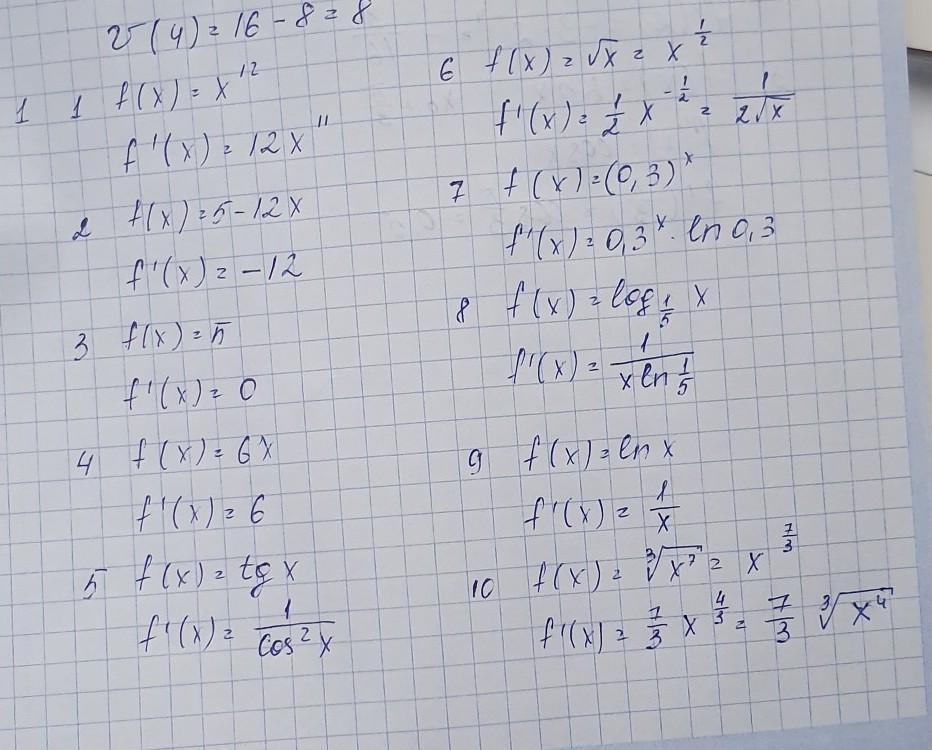 v(4) = 16 - 8 = 8
1 1 f(x) = x¹²
f'(x) = 12x¹¹
2 f(x) = 5 - 12x
f'(x) = -12
3 f(x) = π
f'(x) = 0
4 f(x) = 6x
f'(x) = 6
5 f(x) = tg x
f'(x) = 1/cos²x
6 f(x) = √x = x^(1/2)
f'(x) = 1/2 x^(-1/2) = 1/(2√x)
7 f(x) = (0,3)^x
f'(x) = 0,3^x · ln 0,3
8 f(x) = log_(1/5) x
f'(x) = 1/(x ln 1/5)
9 f(x) = ln x
f'(x) = 1/x
10 f(x) = ∛x⁷ = x^(7/3)
f'(x) = 7/3 x^(4/3) = 7/3 ∛x⁴